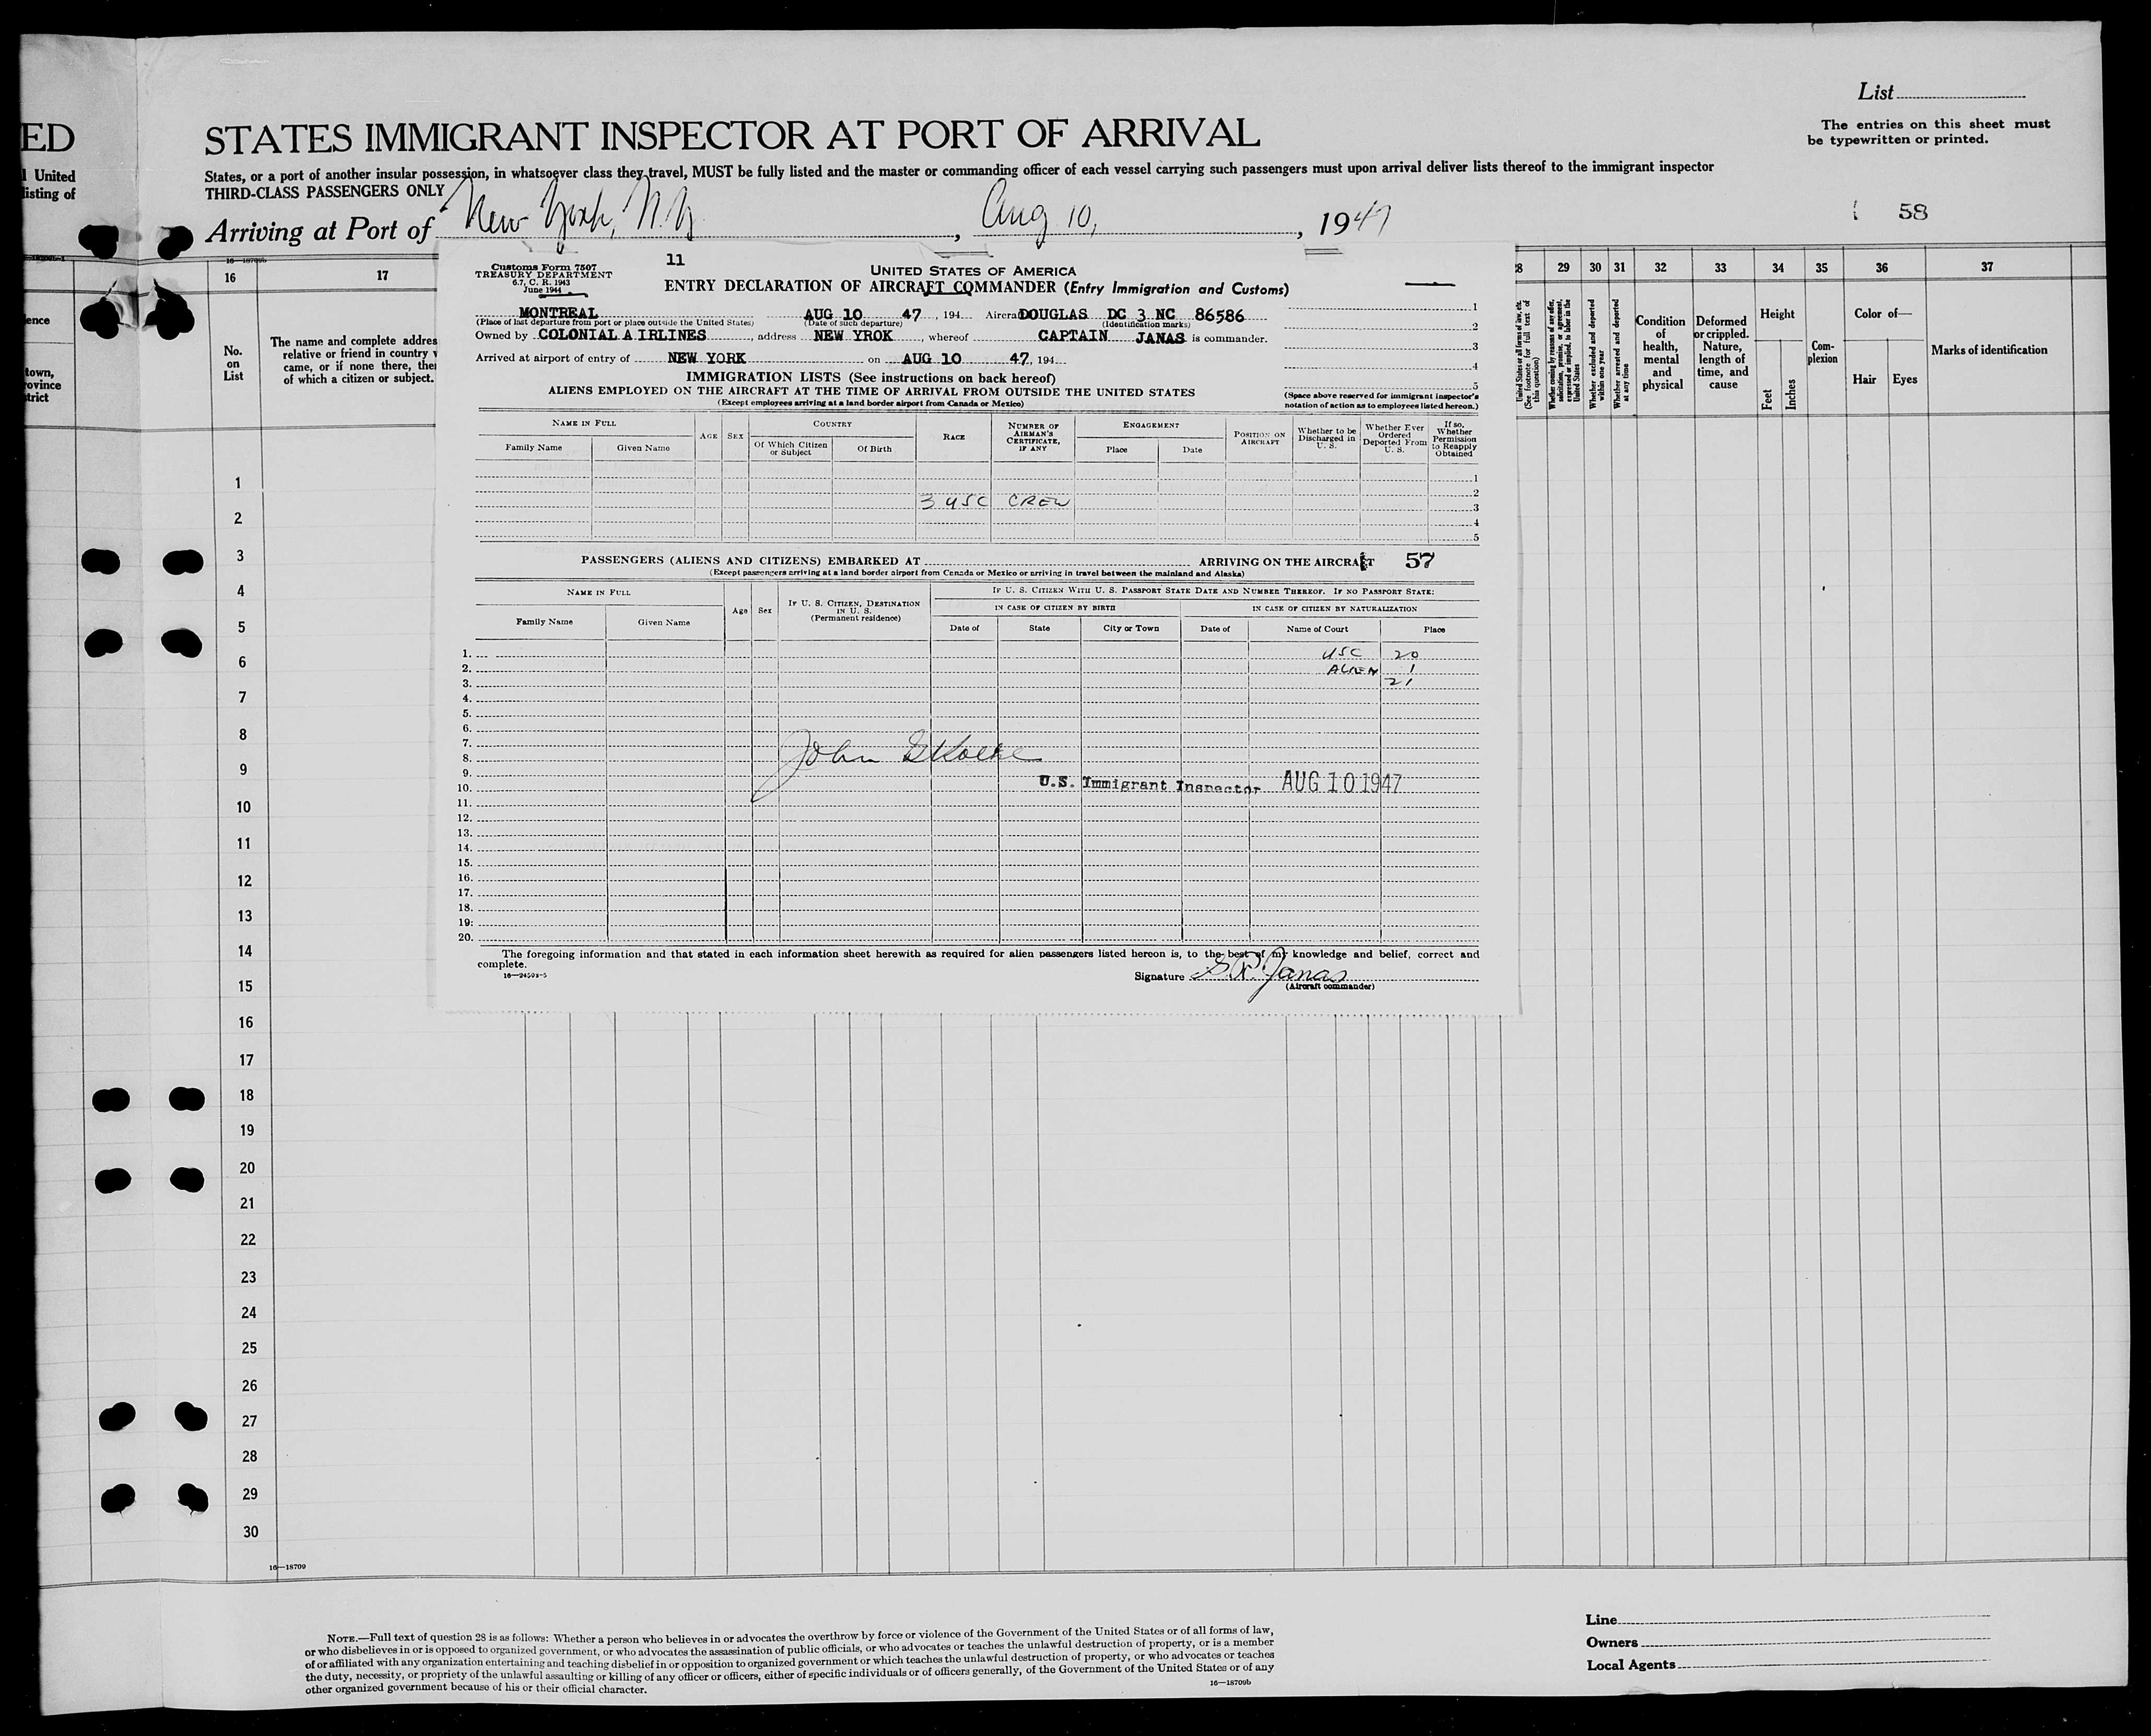 List
The entries on this sheet must
be typewritten or printed.
ED
STATES IMMIGRANT INSPECTOR AT PORT OF ARRIVAL
United
listing of
States, or a port of another insular possession, in whatsoever class they travel, MUST be fully listed and the master or commanding officer of each vessel carrying such passengers must upon arrival deliver lists thereof to the immigrant inspector
THIRD-CLASS PASSENGERS ONLY
Arriving at Port of New York, N.Y. , Aug 10, , 1947
58
16 17
No.
on
List
The name and complete addres
relative or friend in country
came, or if none there, the
of which a citizen or subject.
ence
town,
ovince
trict
Customs Form 7507
TREASURY DEPARTMENT
6.7, C. R. 1943
June 1944
11
UNITED STATES OF AMERICA
ENTRY DECLARATION OF AIRCRAFT COMMANDER (Entry Immigration and Customs)
MONTREAL AUG 10 47 , 194 Aircra DOUGLAS DC 3 NC 86586
(Place of last departure from port or place outside the United States) (Date of such departure) (Identification marks)
Owned by COLONIAL A IRLINES , address NEW YROK , whereof CAPTAIN JANAS is commander.
Arrived at airport of entry of NEW YORK on AUG 10 47, 194
1
2
3
4
5
IMMIGRATION LISTS (See instructions on back hereof)
ALIENS EMPLOYED ON THE AIRCRAFT AT THE TIME OF ARRIVAL FROM OUTSIDE THE UNITED STATES
(Except employees arriving at a land border airport from Canada or Mexico)
(Space above reserved for immigrant inspector's
notation of action as to employees listed hereon.)
NAME IN FULL
Family Name Given Name
AGE SEX
COUNTRY
Of Which Citizen
or Subject
Of Birth
RACE
NUMBER OF
AIRMAN'S
CERTIFICATE,
IF ANY
ENGAGEMENT
Place Date
POSITION ON
AIRCRAFT
Whether to be
Discharged in
U. S.
Whether Ever
Ordered
Deported From
U. S.
If so,
Whether
Permission
to Reapply
Obtained
1
2
3 USC CREW
3
4
5
PASSENGERS (ALIENS AND CITIZENS) EMBARKED AT ARRIVING ON THE AIRCRAFT 57
(Except passengers arriving at a land border airport from Canada or Mexico or arriving in travel between the mainland and Alaska)
NAME IN FULL
Family Name Given Name
Age Sex
IF U. S. CITIZEN, DESTINATION
IN U. S.
(Permanent residence)
IF U. S. CITIZEN WITH U. S. PASSPORT STATE DATE AND NUMBER THEREOF. IF NO PASSPORT STATE:
IN CASE OF CITIZEN BY BIRTH IN CASE OF CITIZEN BY NATURALIZATION
Date of State City or Town Date of Name of Court Place
1. USC 20
2. ALIEN 1
3. 21
4.
5.
6.
7.
8. John
9.
10. U.S. Immigrant Inspector AUG 10 1947
11.
12.
13.
14.
15.
16.
17.
18.
19.
20.
The foregoing information and that stated in each information sheet herewith as required for alien passengers listed hereon is, to the best of my knowledge and belief, correct and
complete.
16—24598-5
Signature S. Janas
(Aircraft commander)
28 29 30 31 32 33 34 35 36 37
United States or of all forms of law, etc.
(See footnote for full text of
this question)
Whether coming by reasons of any offer,
solicitation, promise, or agreement,
expressed or implied, to labor in the
United States
Whether excluded and deported
within one year
Whether arrested and deported
at any time
Condition
of
health,
mental
and
physical
Deformed
or crippled.
Nature,
length of
time, and
cause
Height
Feet
Inches
Com-
plexion
Color of—
Hair Eyes
Marks of identification
1
2
3
4
5
6
7
8
9
10
11
12
13
14
15
16
17
18
19
20
21
22
23
24
25
26
27
28
29
30
16—18709
NOTE.—Full text of question 28 is as follows: Whether a person who believes in or advocates the overthrow by force or violence of the Government of the United States or of all forms of law,
or who disbelieves in or is opposed to organized government, or who advocates the assassination of public officials, or who advocates or teaches the unlawful destruction of property, or is a member
of or affiliated with any organization entertaining and teaching disbelief in or opposition to organized government or which teaches the unlawful destruction of property, or who advocates or teaches
the duty, necessity, or propriety of the unlawful assaulting or killing of any officer or officers, either of specific individuals or of officers generally, of the Government of the United States or of any
other organized government because of his or their official character.
16—18709b
Line
Owners
Local Agents